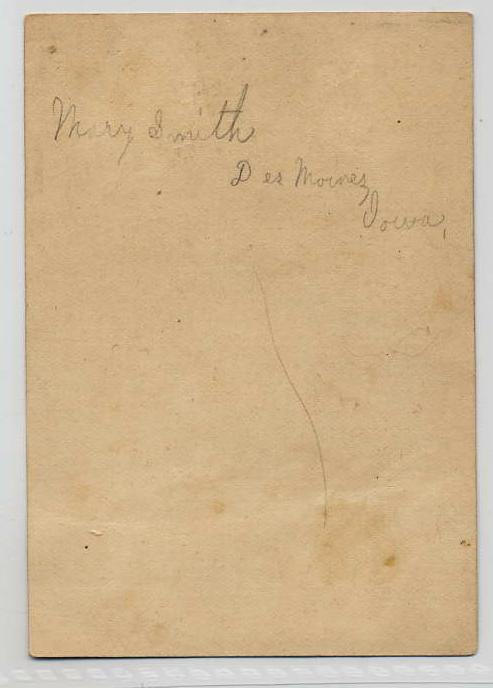 Mary Smith
Des Moines
Iowa,